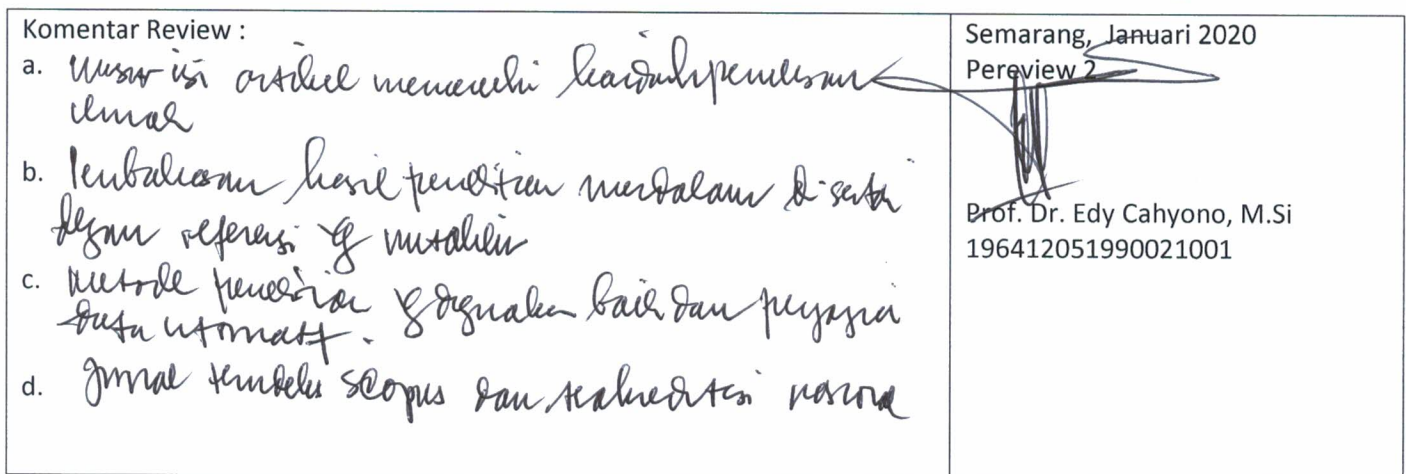 Komentar Review :
a. Unsur isi artikel memenuhi kaidah penulisan
ilmiah
b. Pembahasan hasil penelitian mendalam disertai
dengan referensi yg mutakhir
c. Metode penelitian yg digunakan baik dan penyajian
data informatif.
d. Jurnal terindeks scopus dan terakreditasi nasional
Semarang, Januari 2020
Pereview 2
Prof. Dr. Edy Cahyono, M.Si
196412051990021001